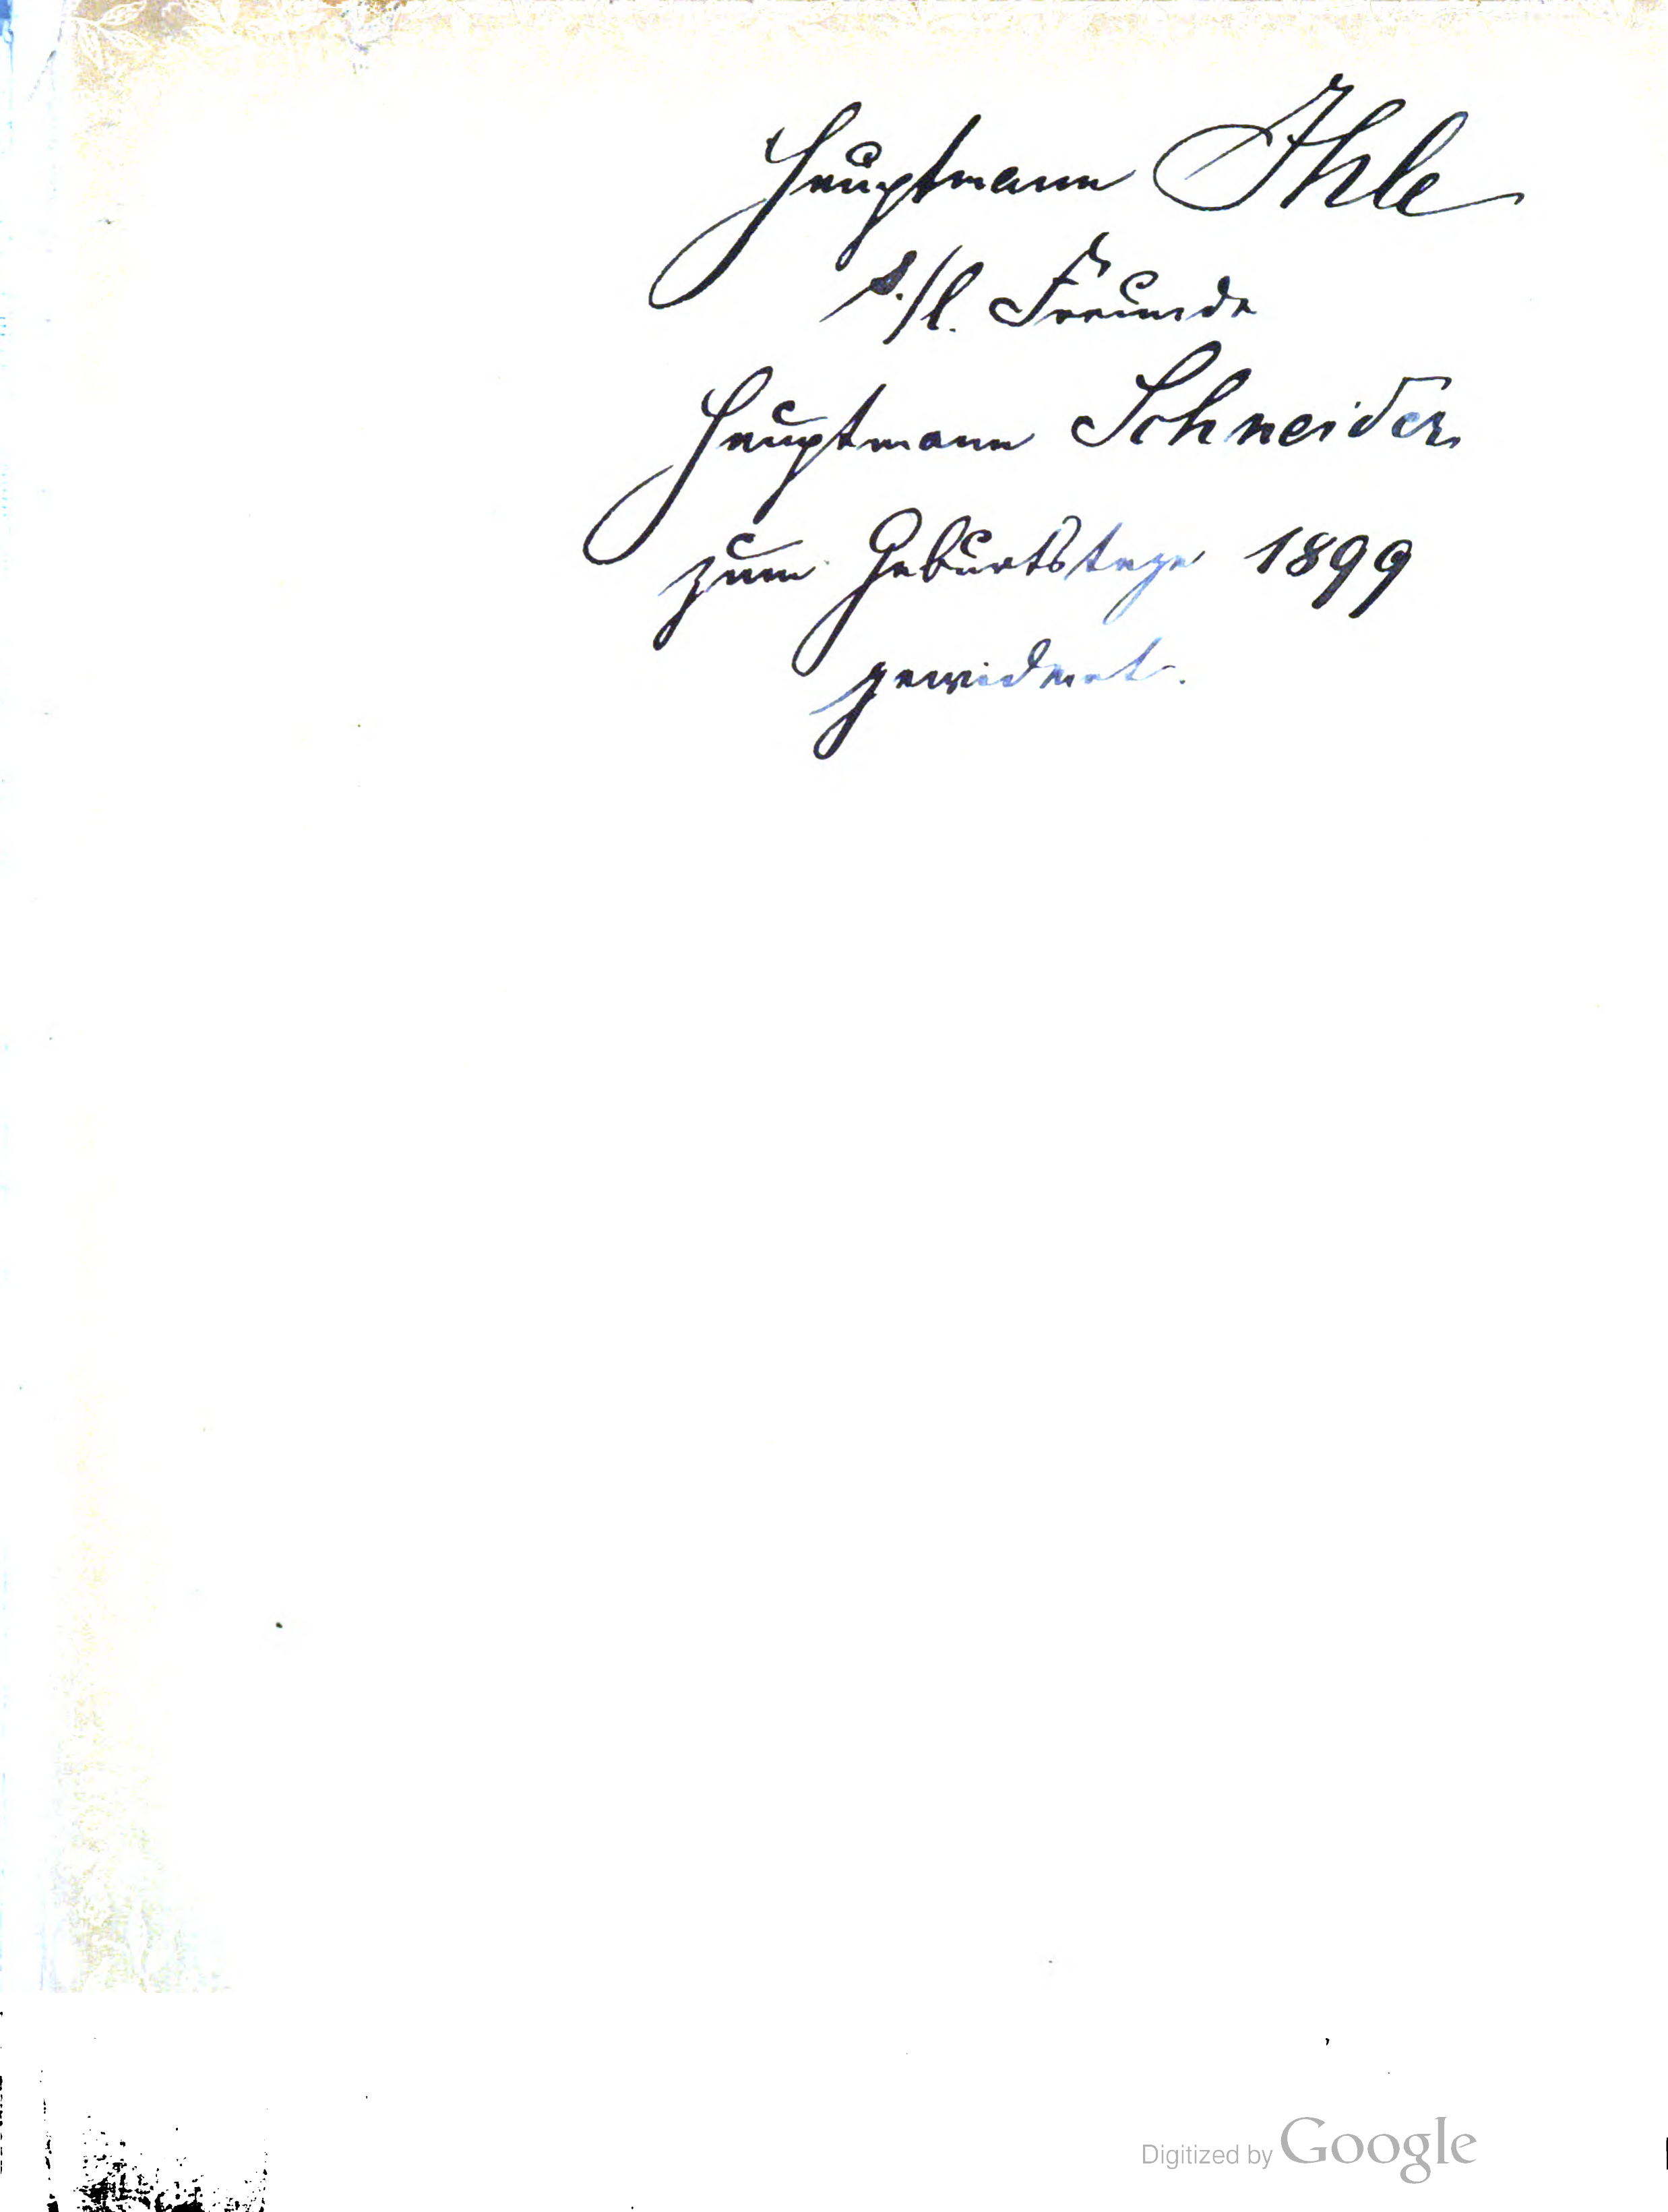 Hauptmann Ihle
s./l. Freunde
Hauptmann Schneider
zum Geburtstage 1899
gewidmet.
Digitized by Google